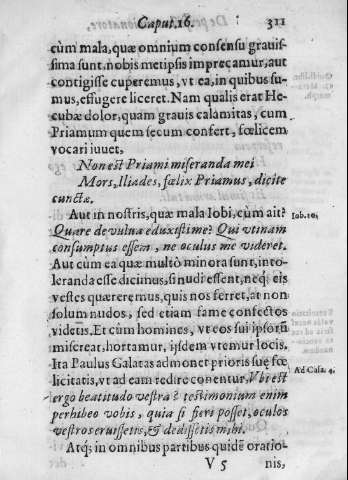 Caput.16. 311
cùm mala, quæ omnium consensu grauis-
sima sunt, nobis metipsis imprecamur, aut
contigisse cuperemus, vt ea, in quibus su-
mus, effugere liceret. Nam qualis erat He-
cubæ dolor, quam grauis calamitas, cum
Priamum quem secum confert, fœlicem
vocari iuuet,
Non est Priami miseranda mei
Mors, Iliades, fœlix Priamus, dicite
cunctæ.
Aut in nostris, quæ mala Iobi, cùm ait?
Iob.10.
Quare de vulua eduxisti me? Qui vtinam
consumptus essem, ne oculus me videret.
Aut cùm ea quæ multò minora sunt, into-
leranda esse dicimus, si nudi essent, neq; eis
vestes quæreremus, quis nos ferret, at non
solum nudos, sed etiam fame confectos
videtis. Et cùm homines, vt eos sui ipsorū
misereat, hortamur, ijsdem vtemur locis.
Ita Paulus Galatas admonet prioris suę fœ
licitatis, vt ad eam redire conentur, Vbi est
Ad Gala. 4.
ergo beatitudo vestra? testimonium enim
perhibeo vobis, quia si fieri posset, oculos
vestros eruissetis, & dedissetis mihi.
Atq; in omnibus partibus quidē oratio-
V 5 nis,